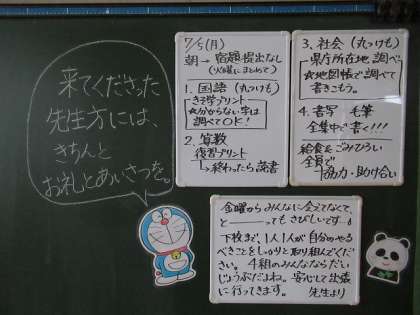 来てくださった
先生方には、
きちんと
お礼とあいさつを。
7/5(月)
朝→宿題提出なし
(火曜にまとめて)
1. 国語 (丸つけも)
漢字学プリント
☆分からない字は
調べてOK!
2. 算数
復習プリント
→終わったら読書
3. 社会 (丸つけも)
県庁所在地調べ
☆地図帳で調べて
書きこもう。
4. 書写 毛筆
全集中で書く!!!
給食もごみひろい
全員で
協力・助け合い
金曜からみんなに会えてなくて、
と———ってもさびしいです。
下校まで、1人1人が自分のやる
べきことをしっかりと取り組んでくだ
さい。4組のみんなならだい
じょうぶだよね。安心して出張
に行ってきます。 先生より